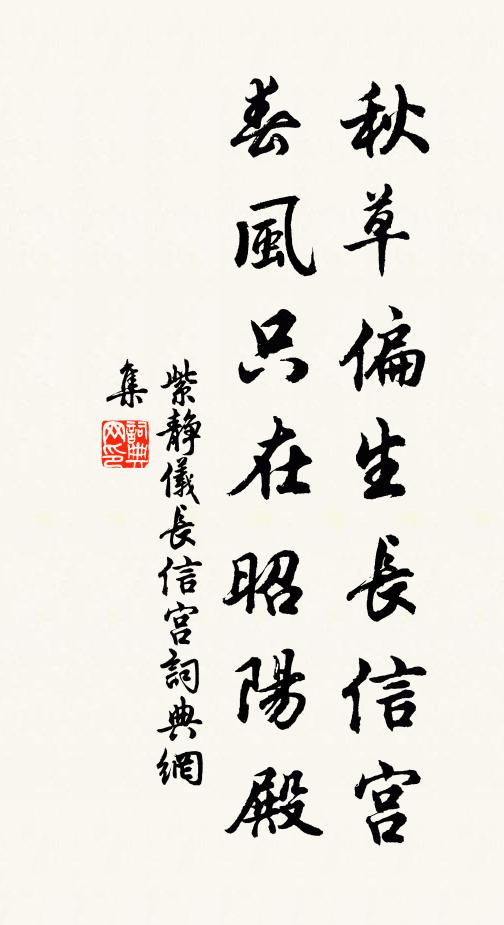 秋草偏生長信宮
春風只在昭陽殿
紫靜儀長信宮詞典網
集
詞典网印